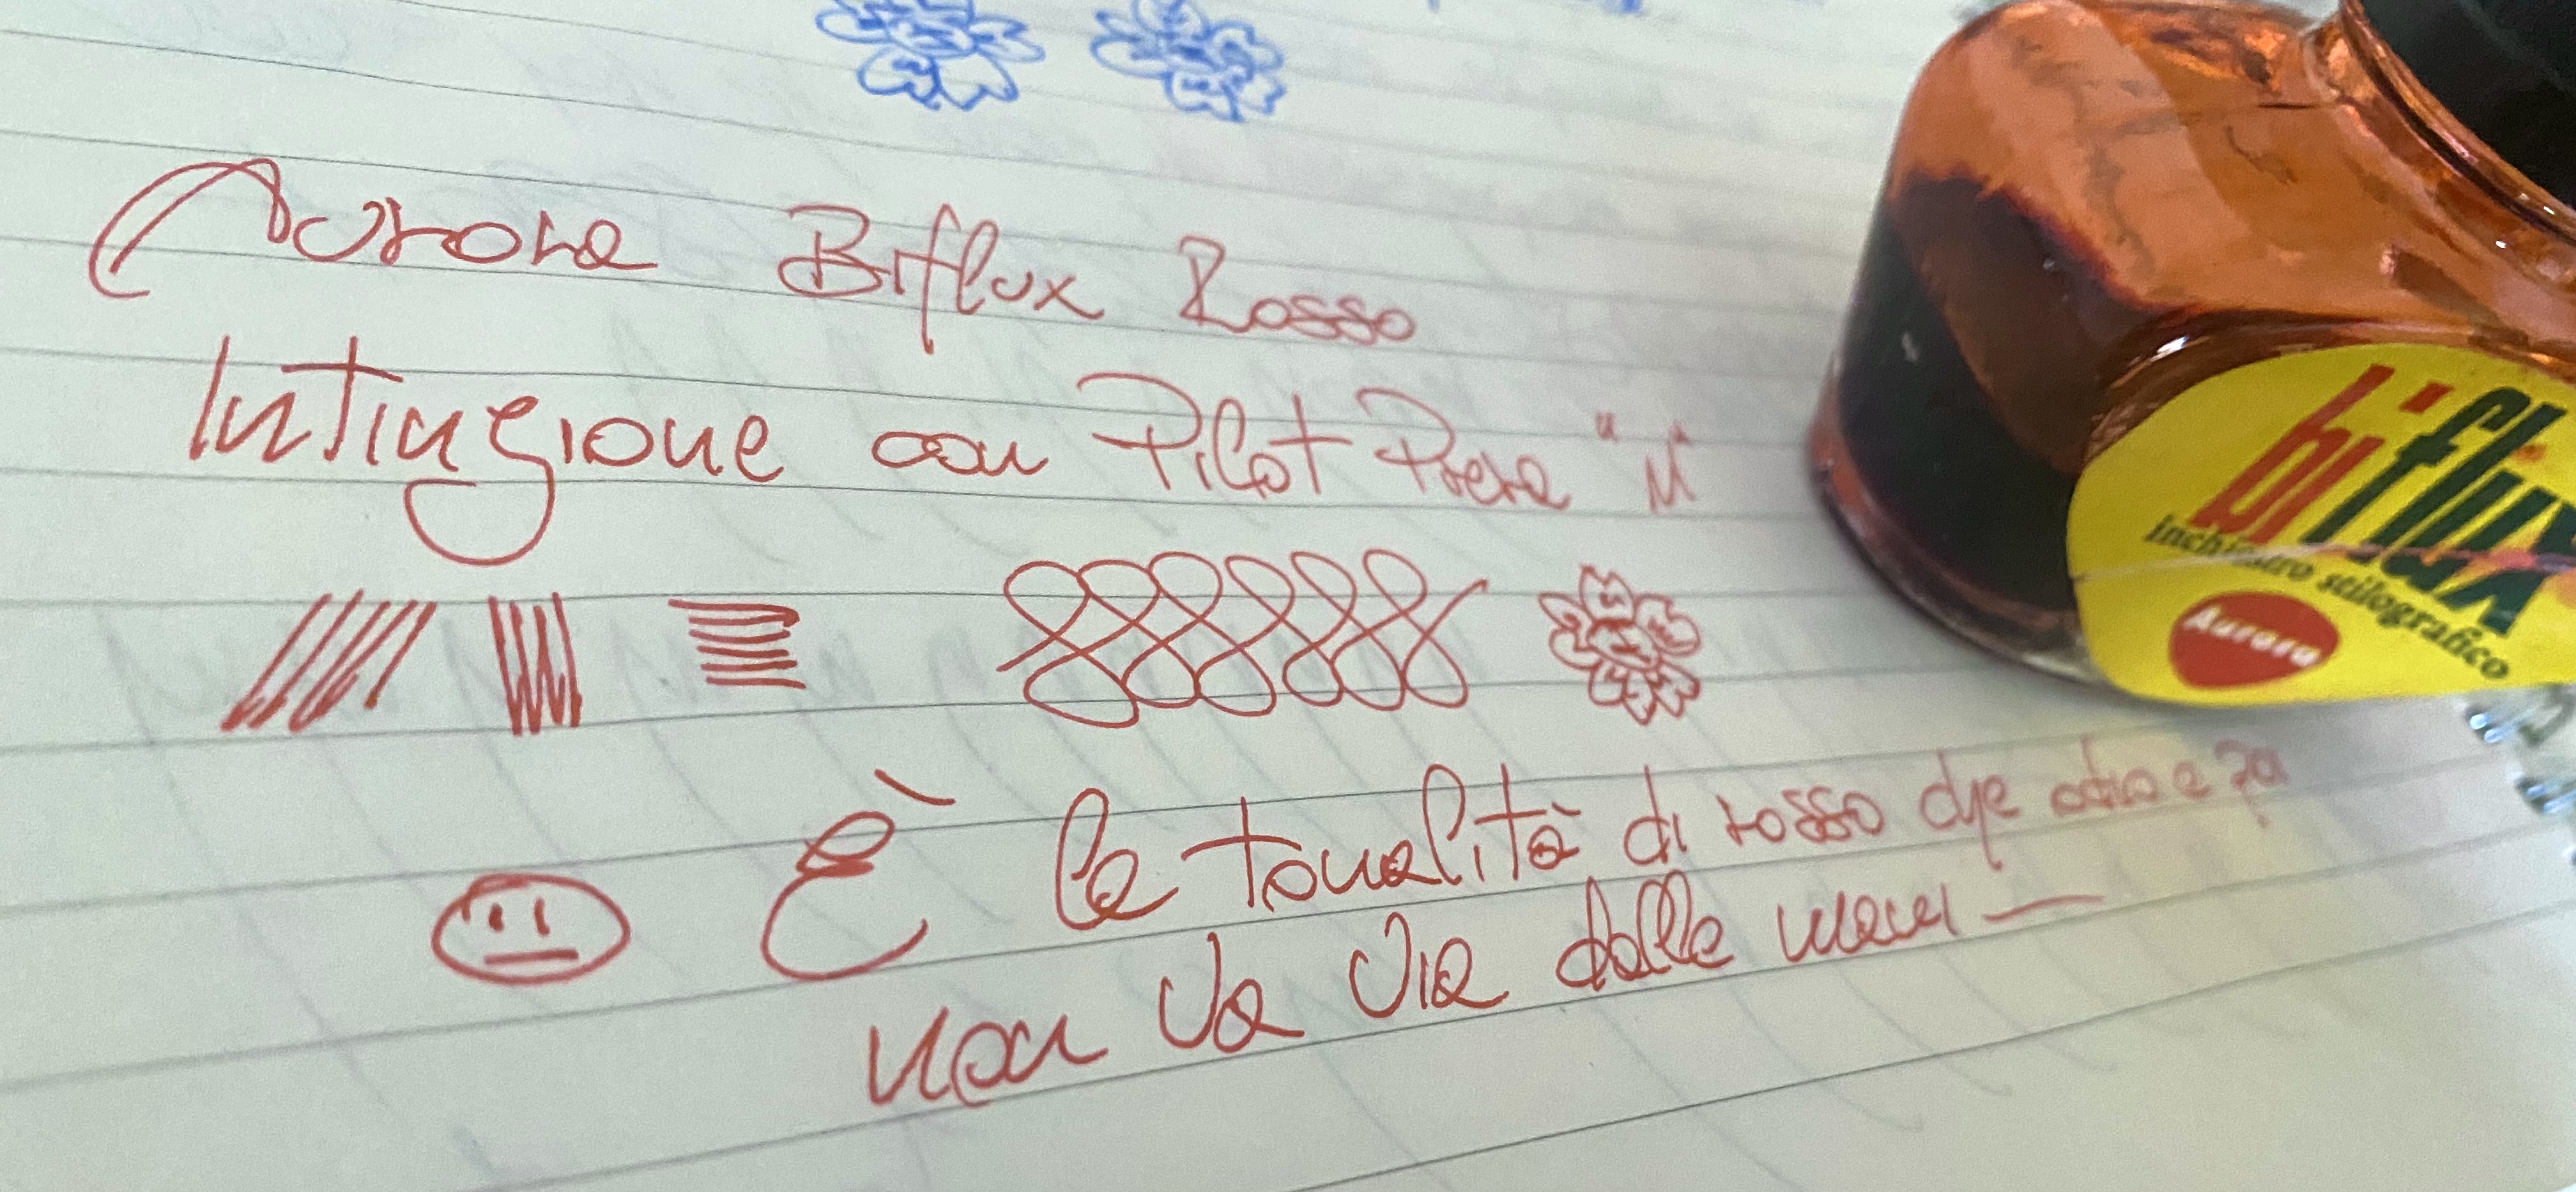 Aurora Biflux Rosso
Intinzione con Pilot Prera "M"
È la tonalità di rosso che odio e poi
non va via dalle mani —
biflux
inchiostro stilografico
Aurora